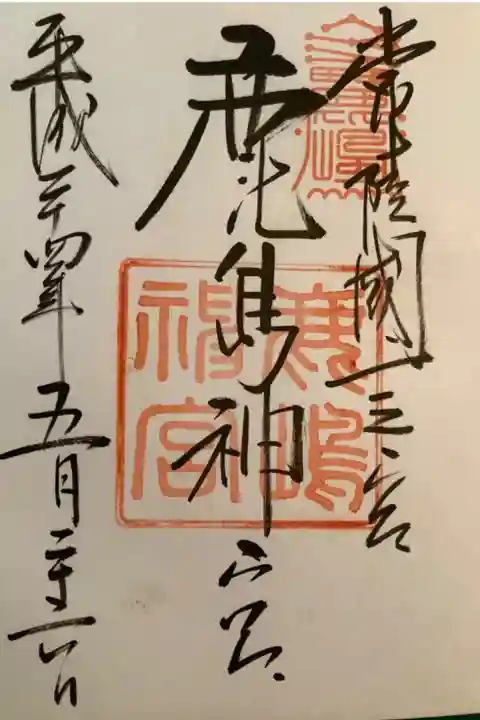 常陸國一之宮
鹿島神宮
鹿嶋
神宮
平成二十四年五月二十六日